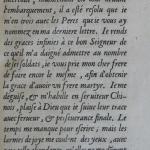 l'embarquement, il a esté resolu que ie
m'en irois auec les Peres que ie vous ay
nommez en ma derniere lettre. Ie rends
des graces infinies à ce bon Seigneur de
ce qu'il m'a daigné admettre au nombre
de ses soldats, ie vous prie mon cher frere
de faire encor le mesme, afin d'obtenir
la grace d'auoir vn frere martyr. Ie me
deguise, & m'habille en seruiteur Chi-
nois, plaise à Dieu que ie suiue leur trace
auec ferueur, & perseuerance finale. Le
temps me manque pour escrire, mais les
larmes de ioye me coulent des yeux, quand